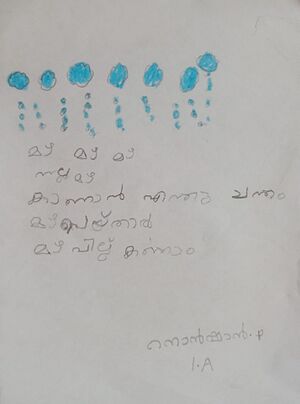 മഴ മഴ മഴ
നല്ല മഴ
കാണാൻ എന്തു ചന്തം
മഴപെയ്താൽ
മഴ വില്ല് കണാം
1.A